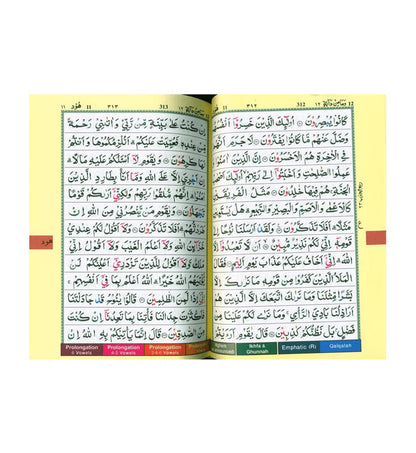 12 ومامن دآبة ١٢ 312 ٣١٢ 11 هُوْد
كَانُوْا يُبْصِرُوْنَ اُولٰٓئِكَ الَّذِيْنَ خَسِرُوْٓا اَنْفُسَهُمْ
وَضَلَّ عَنْهُمْ مَّا كَانُوْا يَفْتَرُوْنَ لَا جَرَمَ اَنَّهُمْ
فِى الْاٰخِرَةِ هُمُ الْاَخْسَرُوْنَ اِنَّ الَّذِيْنَ اٰمَنُوْا وَ
عَمِلُوا الصّٰلِحٰتِ وَاَخْبَتُوْٓا اِلٰى رَبِّهِمْ اُولٰٓئِكَ اَصْحٰبُ
الْجَنَّةِ هُمْ فِيْهَا خٰلِدُوْنَ مَثَلُ الْفَرِيْقَيْنِ
كَالْاَعْمٰى وَالْاَصَمِّ وَالْبَصِيْرِ وَالسَّمِيْعِ هَلْ يَسْتَوِيٰنِ
مَثَلًا اَفَلَا تَذَكَّرُوْنَ وَلَقَدْ اَرْسَلْنَا نُوْحًا اِلٰى
قَوْمِهٖٓ اِنِّىْ لَكُمْ نَذِيْرٌ مُّبِيْنٌ اَنْ لَّا تَعْبُدُوْٓا اِلَّا
اللّٰهَ اِنِّىْٓ اَخَافُ عَلَيْكُمْ عَذَابَ يَوْمٍ اَلِيْمٍ فَقَالَ
الْمَلَاُ الَّذِيْنَ كَفَرُوْا مِنْ قَوْمِهٖ مَا نَرٰىكَ اِلَّا
بَشَرًا مِّثْلَنَا وَمَا نَرٰىكَ اتَّبَعَكَ اِلَّا الَّذِيْنَ هُمْ
اَرَاذِلُنَا بَادِىَ الرَّاْىِ وَمَا نَرٰى لَكُمْ عَلَيْنَا مِنْ
فَضْلٍۭ بَلْ نَظُنُّكُمْ كٰذِبِيْنَ قَالَ يٰقَوْمِ اَرَءَيْتُمْ
Ikhfa & Ghunnah Emphatic (R) Qalqalah
12 ومامن دآبة ١٢ 313 ٣١٣ 11 هُوْد ١١
اِنْ كُنْتُ عَلٰى بَيِّنَةٍ مِّنْ رَّبِّىْ وَاٰتٰىنِىْ رَحْمَةً
مِّنْ عِنْدِهٖ فَعُمِّيَتْ عَلَيْكُمْ اَنُلْزِمُكُمُوْهَا وَاَنْتُمْ
لَهَا كٰرِهُوْنَ وَيٰقَوْمِ لَآ اَسْـَٔلُكُمْ عَلَيْهِ مَالًا
اِنْ اَجْرِىَ اِلَّا عَلَى اللّٰهِ وَمَآ اَنَا بِطَارِدِ الَّذِيْنَ
اٰمَنُوْا اِنَّهُمْ مُّلٰقُوْا رَبِّهِمْ وَلٰكِنِّىْٓ اَرٰىكُمْ قَوْمًا
تَجْهَلُوْنَ وَيٰقَوْمِ مَنْ يَّنْصُرُنِىْ مِنَ اللّٰهِ اِنْ
طَرَدْتُّهُمْ اَفَلَا تَذَكَّرُوْنَ وَلَآ اَقُوْلُ لَكُمْ عِنْدِىْ
خَزَآئِنُ اللّٰهِ وَلَآ اَعْلَمُ الْغَيْبَ وَلَآ اَقُوْلُ اِنِّىْ
مَلَكٌ وَّلَآ اَقُوْلُ لِلَّذِيْنَ تَزْدَرِىْٓ اَعْيُنُكُمْ لَنْ
يُّؤْتِيَهُمُ اللّٰهُ خَيْرًا اَللّٰهُ اَعْلَمُ بِمَا فِىْٓ اَنْفُسِهِمْ
اِنِّىْٓ اِذًا لَّمِنَ الظّٰلِمِيْنَ قَالُوْا يٰنُوْحُ قَدْ جَادَلْتَنَا
فَاَكْثَرْتَ جِدَالَنَا فَاْتِنَا بِمَا تَعِدُنَآ اِنْ كُنْتَ
مِنَ الصّٰدِقِيْنَ قَالَ اِنَّمَا يَاْتِيْكُمْ بِهِ اللّٰهُ اِنْ
Prolongation 6 Vowels Prolongation 4-5 Vowels Prolongation 2-4-6 Vowels
هود